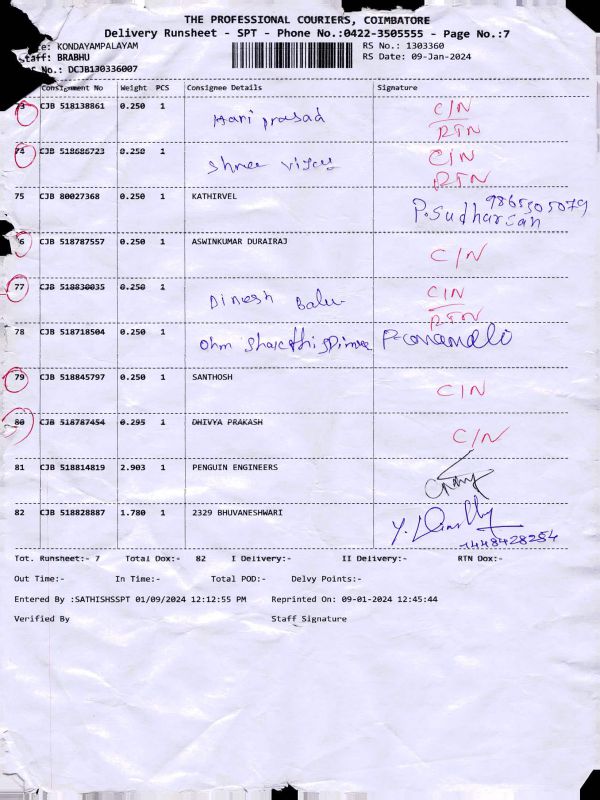 THE PROFESSIONAL COURIERS, COIMBATORE
Delivery Runsheet - SPT - Phone No.:0422-3505555 - Page No.:7
KONDAYAMPALAYAM RS No.: 1303360
BRABHU RS Date: 09-Jan-2024
No.: DCJB130336007
Consignment No Weight PCS Consignee Details Signature
73 CJB 518138861 0.250 1 Hari prasad C/N
RTN
74 CJB 518686723 0.250 1 Shree vijay C/N
RTN
75 CJB 80027368 0.250 1 KATHIRVEL 9865505079
P.Sudharsan
76 CJB 518787557 0.250 1 ASWINKUMAR DURAIRAJ C/N
77 CJB 518830035 0.250 1 Dinesh Balu C/N
RTN
78 CJB 518718504 0.250 1 Ohm
79 CJB 518845797 0.250 1 SANTHOSH C/N
80 CJB 518787454 0.295 1 DHIVYA PRAKASH C/N
81 CJB 518814819 2.903 1 PENGUIN ENGINEERS
82 CJB 518828887 1.780 1 2329 BHUVANESHWARI
Tot. Runsheet:- 7 Total Dox:- 82 I Delivery:- II Delivery:- RTN Dox:-
Out Time:- In Time:- Total POD:- Delvy Points:-
Entered By :SATHISHSSPT 01/09/2024 12:12:55 PM Reprinted On: 09-01-2024 12:45:44
Verified By Staff Signature